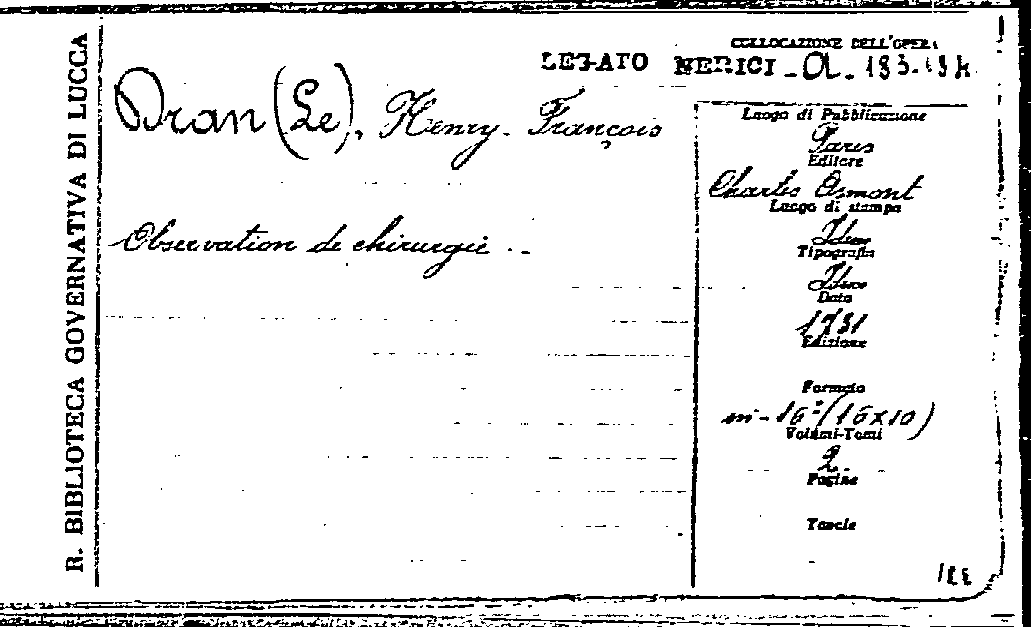 R. BIBLIOTECA GOVERNATIVA DI LUCCA
COLLOCAZIONE DELL'OPERA
LEGATO NERICI - a. 193-194
Dran (Le), Henry-François
Observation de chirurgie ..
Luogo di Pubblicazione
Paris
Editore
Charles Osmont
Luogo di stampa
Idem
Tipografia
Idem
Data
1731
Edizione
Formato
in-16° (16x10)
Volumi-Tomi
2
Pagine
Tavole